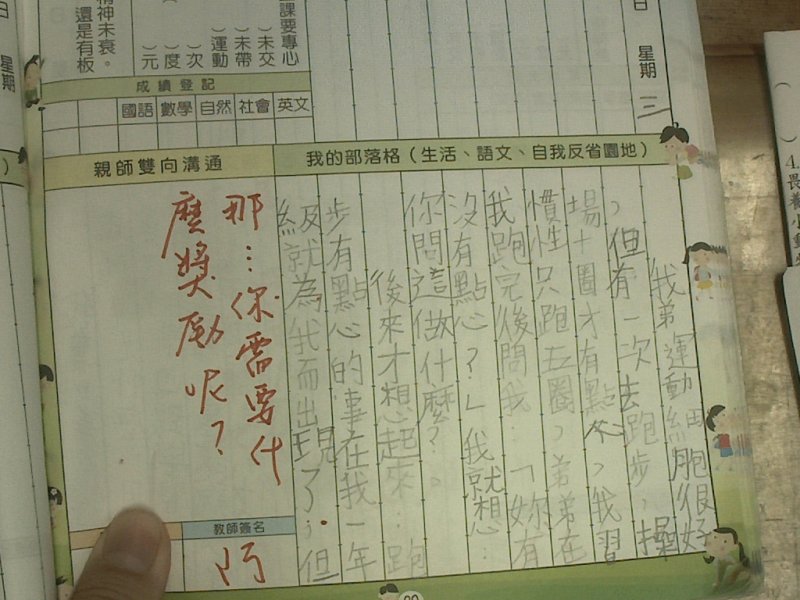 日 星期三
課要專心
）未交
）未帶
）運動
）次
）度
）元
神未衰。
還是有板
星期
成績登記
國語 數學 自然 社會 英文
我的部落格（生活、語文、自我反省園地）
我弟運動細胞很好
，但有一次去跑步，操
場十圈才有點心，我習
慣性只跑五圈，弟弟在
我跑完後問我：「妳有
沒有點心？」我就想：
你問這做什麼？。
後來才想起來：跑
步有點心的事在我一年
級就為我而出現了：但
親師雙向溝通
那…你需要什
麼獎勵呢？
教師簽名